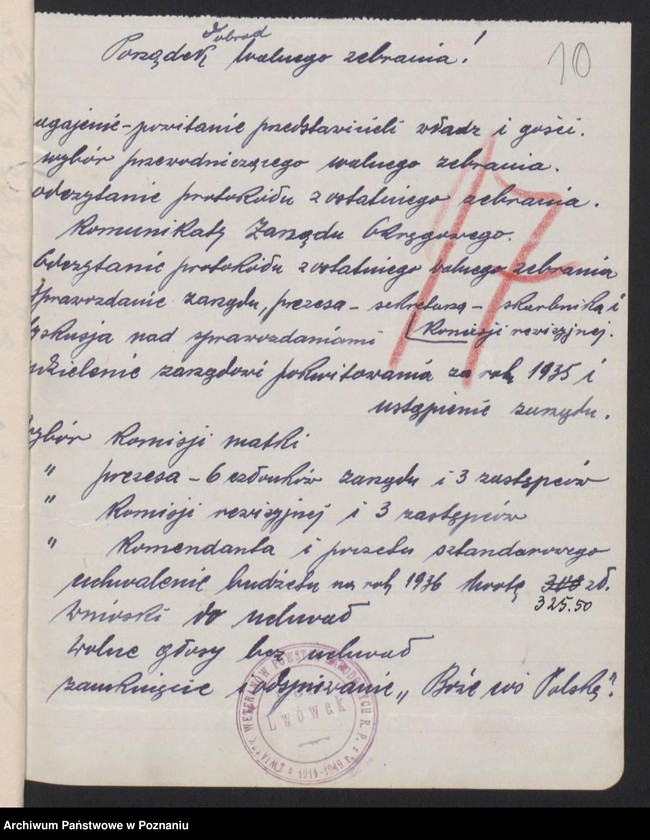 Porządek obrad walnego zebrania!
10
17
ugajenie – powitanie przedstawicieli władz i gości.
wybór przewodniczącego walnego zebrania.
odczytanie protokółu z ostatniego zebrania.
Komunikaty Zarządu Okręgowego.
Odczytanie protokółu z ostatniego walnego zebrania
Sprawozdanie zarządu, prezesa – sekretarza – skarbnika i
yskusja nad sprawozdaniami Komisji rewizyjnej.
udzielenie zarządowi pokwitowania za rok 1935 i
ustąpienie zarządu.
ybór Komisji matki
" prezesa – 6 członków zarządu i 3 zastępców
" Komisji rewizyjnej i 3 zastępców
" Komendanta i pocztu sztandarowego
uchwalenie budżetu na rok 1936 kwotę 300 zł.
325.50
Wnioski do uchwał
Wolne głosy bez uchwał
zamknięcie i odśpiewanie „Boże coś Polskę".
ZWIĄZEK WETERANÓW POWSTAŃ NARODOWYCH R.P.
1914-1919
LWÓWEK
Archiwum Państwowe w Poznaniu